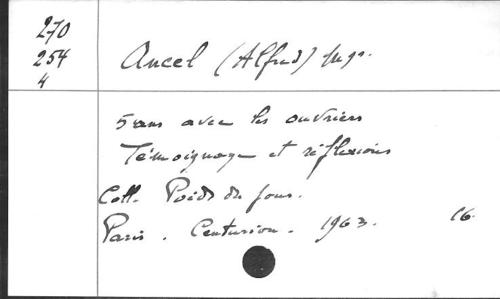 270
254
4
Ancel (Alfred) Mgr.
5 ans avec les ouvriers
Témoignage et réflexions
Coll. Poids du jour.
Paris. Centurion. 1963. 16.